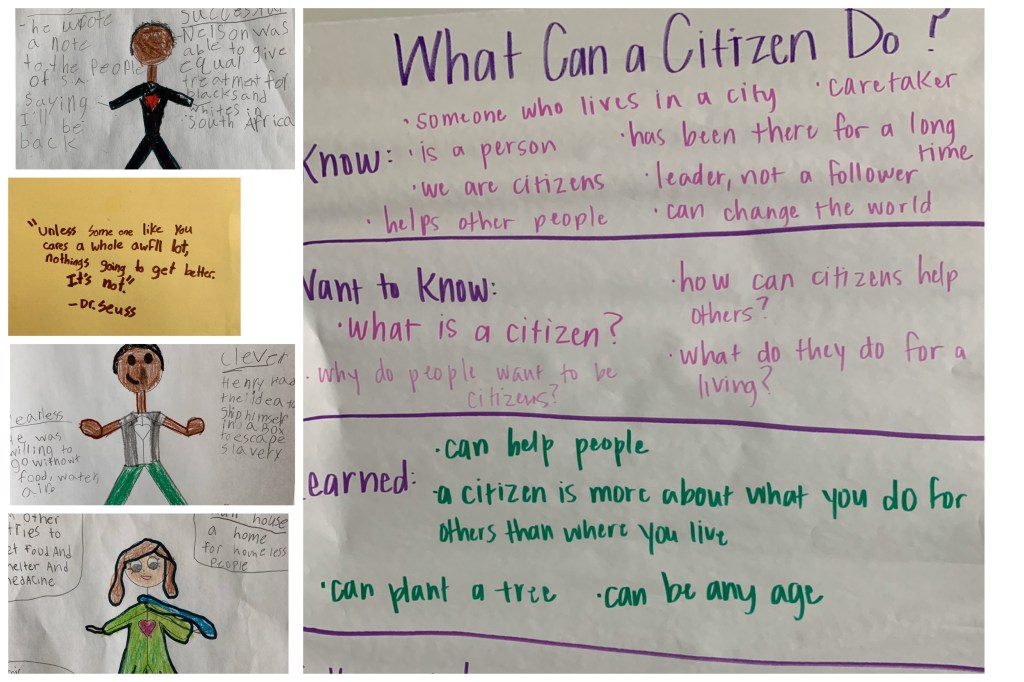 - he wrote
a note
to the people
of S.A.
saying
I'll be
back
Successful
Nelson was
able to give
equal
treatment for
blacks and
whites in
South Africa
"Unless some one like you
cares a whole awfll lot,
nothings going to get better.
It's not."
-Dr. Seuss
clever
Henry had
the idea to
ship himself
in a box
to escape
slavery
earless
willing to
go without
food, water,
air
other
food And
And
house
a home
for homeless
people
What Can a Citizen Do?
Know:
• someone who lives in a city
• caretaker
• is a person
• has been there for a long
time
• we are citizens
• leader, not a follower
• helps other people
• can change the world
Want to Know:
• how can citizens help
others?
• What is a citizen?
• what do they do for a
living?
• why do people want to be
citizens?
earned:
• can help people
• a citizen is more about what you do for
others than where you live
• can plant a tree
• can be any age